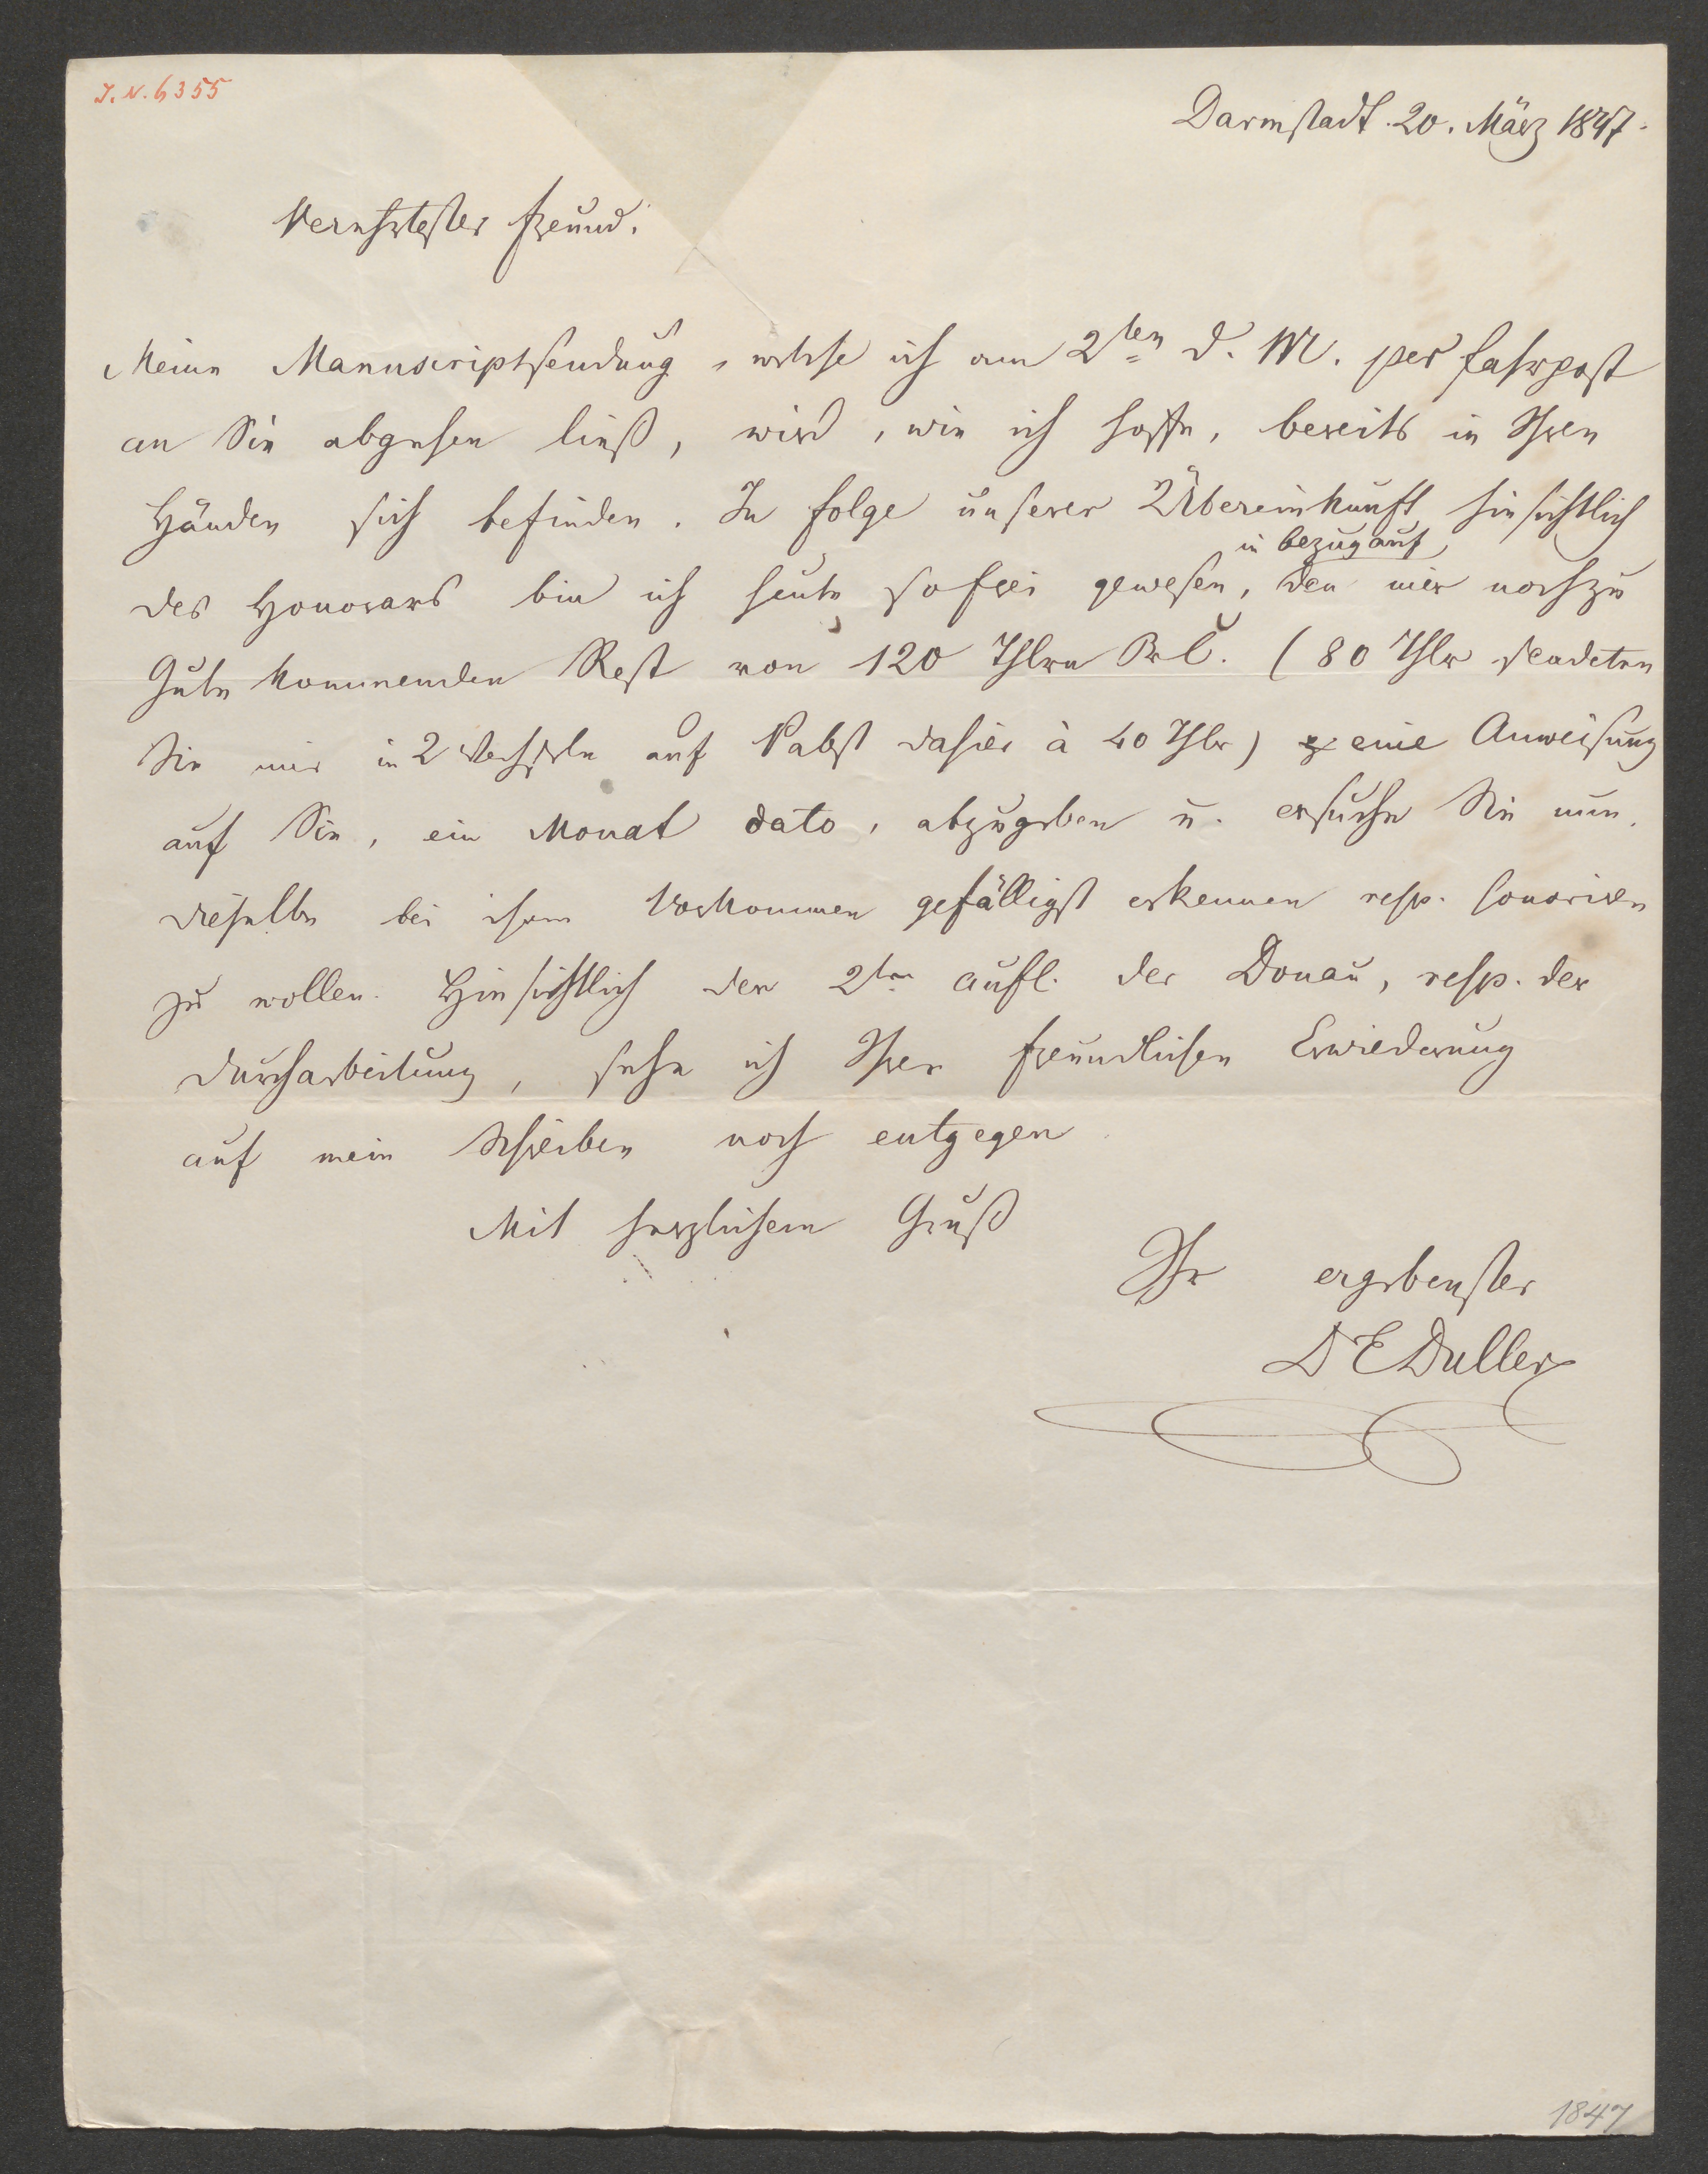 J. N. 6355
Darmstadt. 20. März 1847.
Verehrtester Freund!
Meine Manuscriptsendung, welche ich am 2ten d. M. per Fahrpost
an Sie abgehen ließ, wird, wie ich hoffe, bereits in Ihren
Händen sich befinden. In Folge unserer Übereinkunft hinsichtlich
des Honorars bin ich heute so frei gewesen, in Bezug auf den mir noch zu
Gute kommenden Rest von 120 Thlrn Pr C. (80 Thlr sendeten
Sie mir in 2 Wechseln auf Pabst dahier à 40 Thlr) eine Anweisung
auf Sie, ein Monat dato, abzugeben u. ersuche Sie nun,
dieselbe bei ihrem Vorkommen gefälligst erkennen resp. honoriren
zu wollen. Hinsichtlich der 2ten Aufl. der Donau, resp. der
Durcharbeitung, sehe ich Ihrer freundlichen Erwiederung
auf mein Schreiben noch entgegen.
Mit herzlichem Gruß
Ihr ergebenster
D E Duller
1847